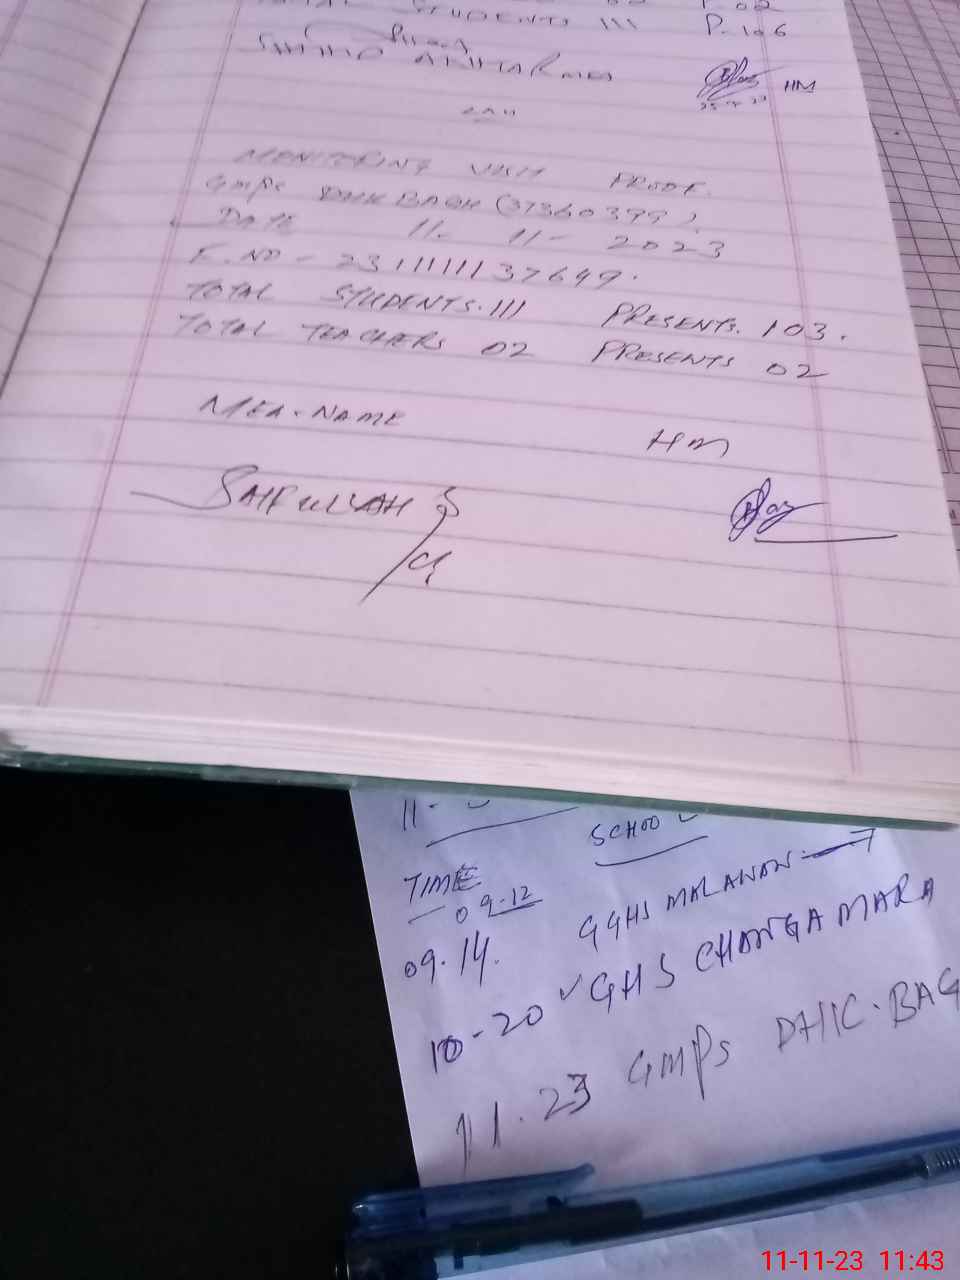 STUDENTS 111 P-106
HM
MONITORING VISIT PROOF.
GMPS DHK BAGH (37360399).
DATE 11- 11- 2023
F.NO - 2311111137649.
TOTAL STUDENTS. 111 PRESENTS. 103.
TOTAL TEACHERS 02 PRESENTS 02
MEA. NAME HM
SAIFULLAH
SCHOOL
TIME
09-12
09.14. GGHS MALANAN
10-20 GHS CHANGA MARA
11.23 GMPS DHK.BAG
11-11-23 11:43